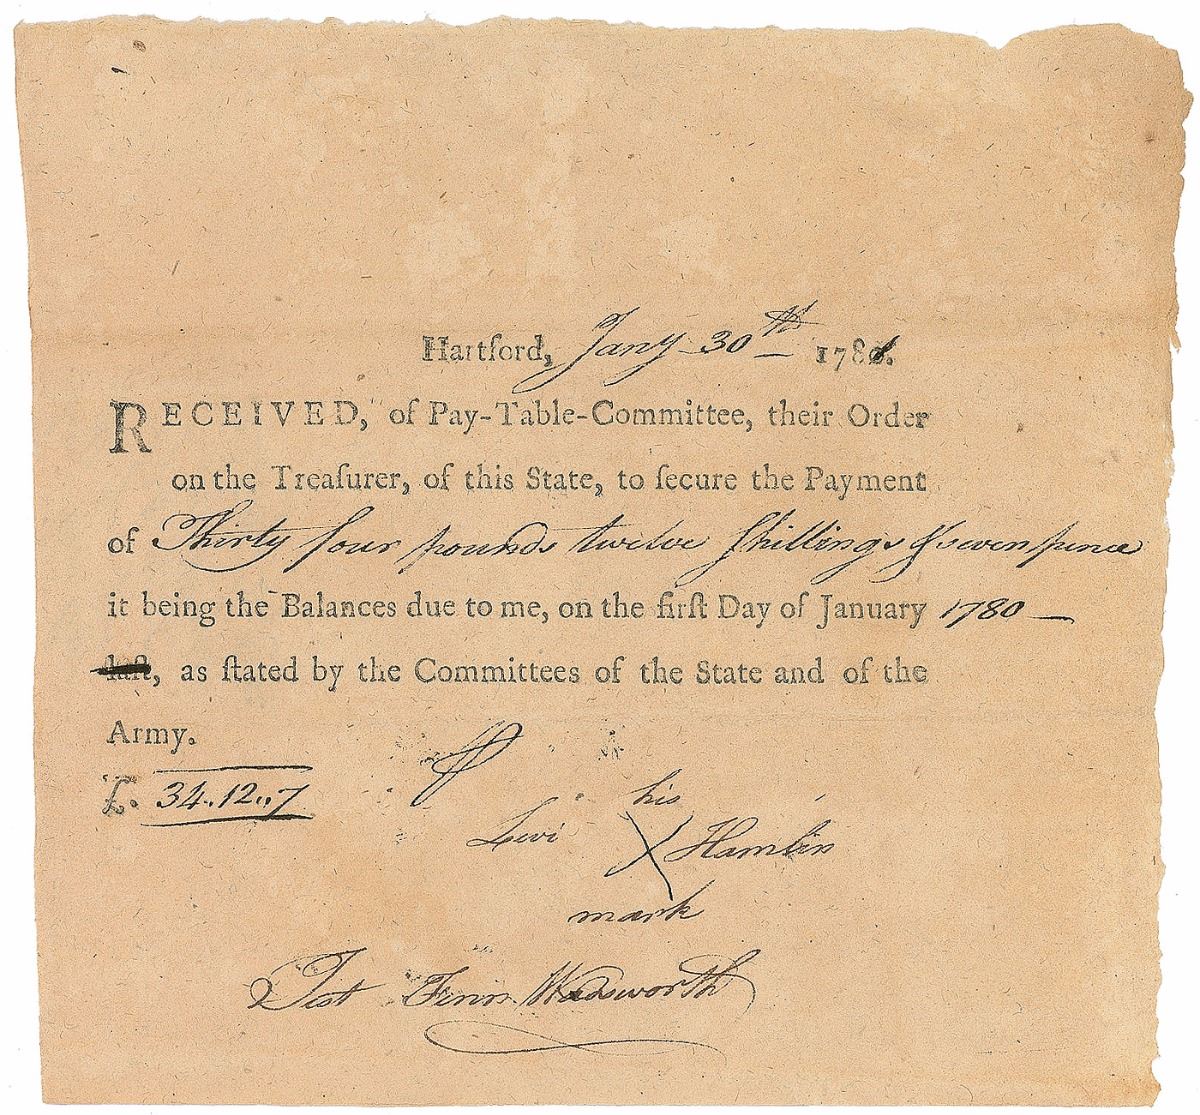 Hartford, Jany 30th 1781.
RECEIVED, of Pay-Table-Committee, their Order
on the Treaſurer, of this State, to ſecure the Payment
of Thirty four pounds twelve Shillings & seven pence
it being the Balances due to me, on the firſt Day of January 1780
laſt, as ſtated by the Committees of the State and of the
Army.
£. 34..12..7
his
Levi X Hamlin
mark
Test Fenn Wadsworth